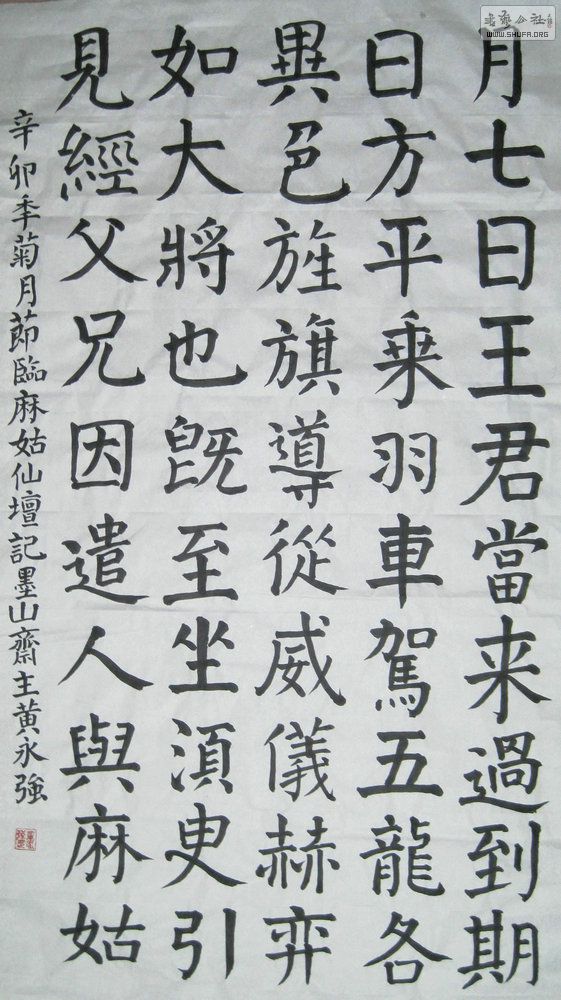 月七日王君當来過到期
日方平乗羽車駕五龍各
異色旌旗導從威儀赫弈
如大將也既至坐須吏引
見經父兄因遣人與麻姑
辛卯年菊月節臨麻姑仙壇記墨山齋主黄永強
書藝公社
WWW.SHUFA.ORG